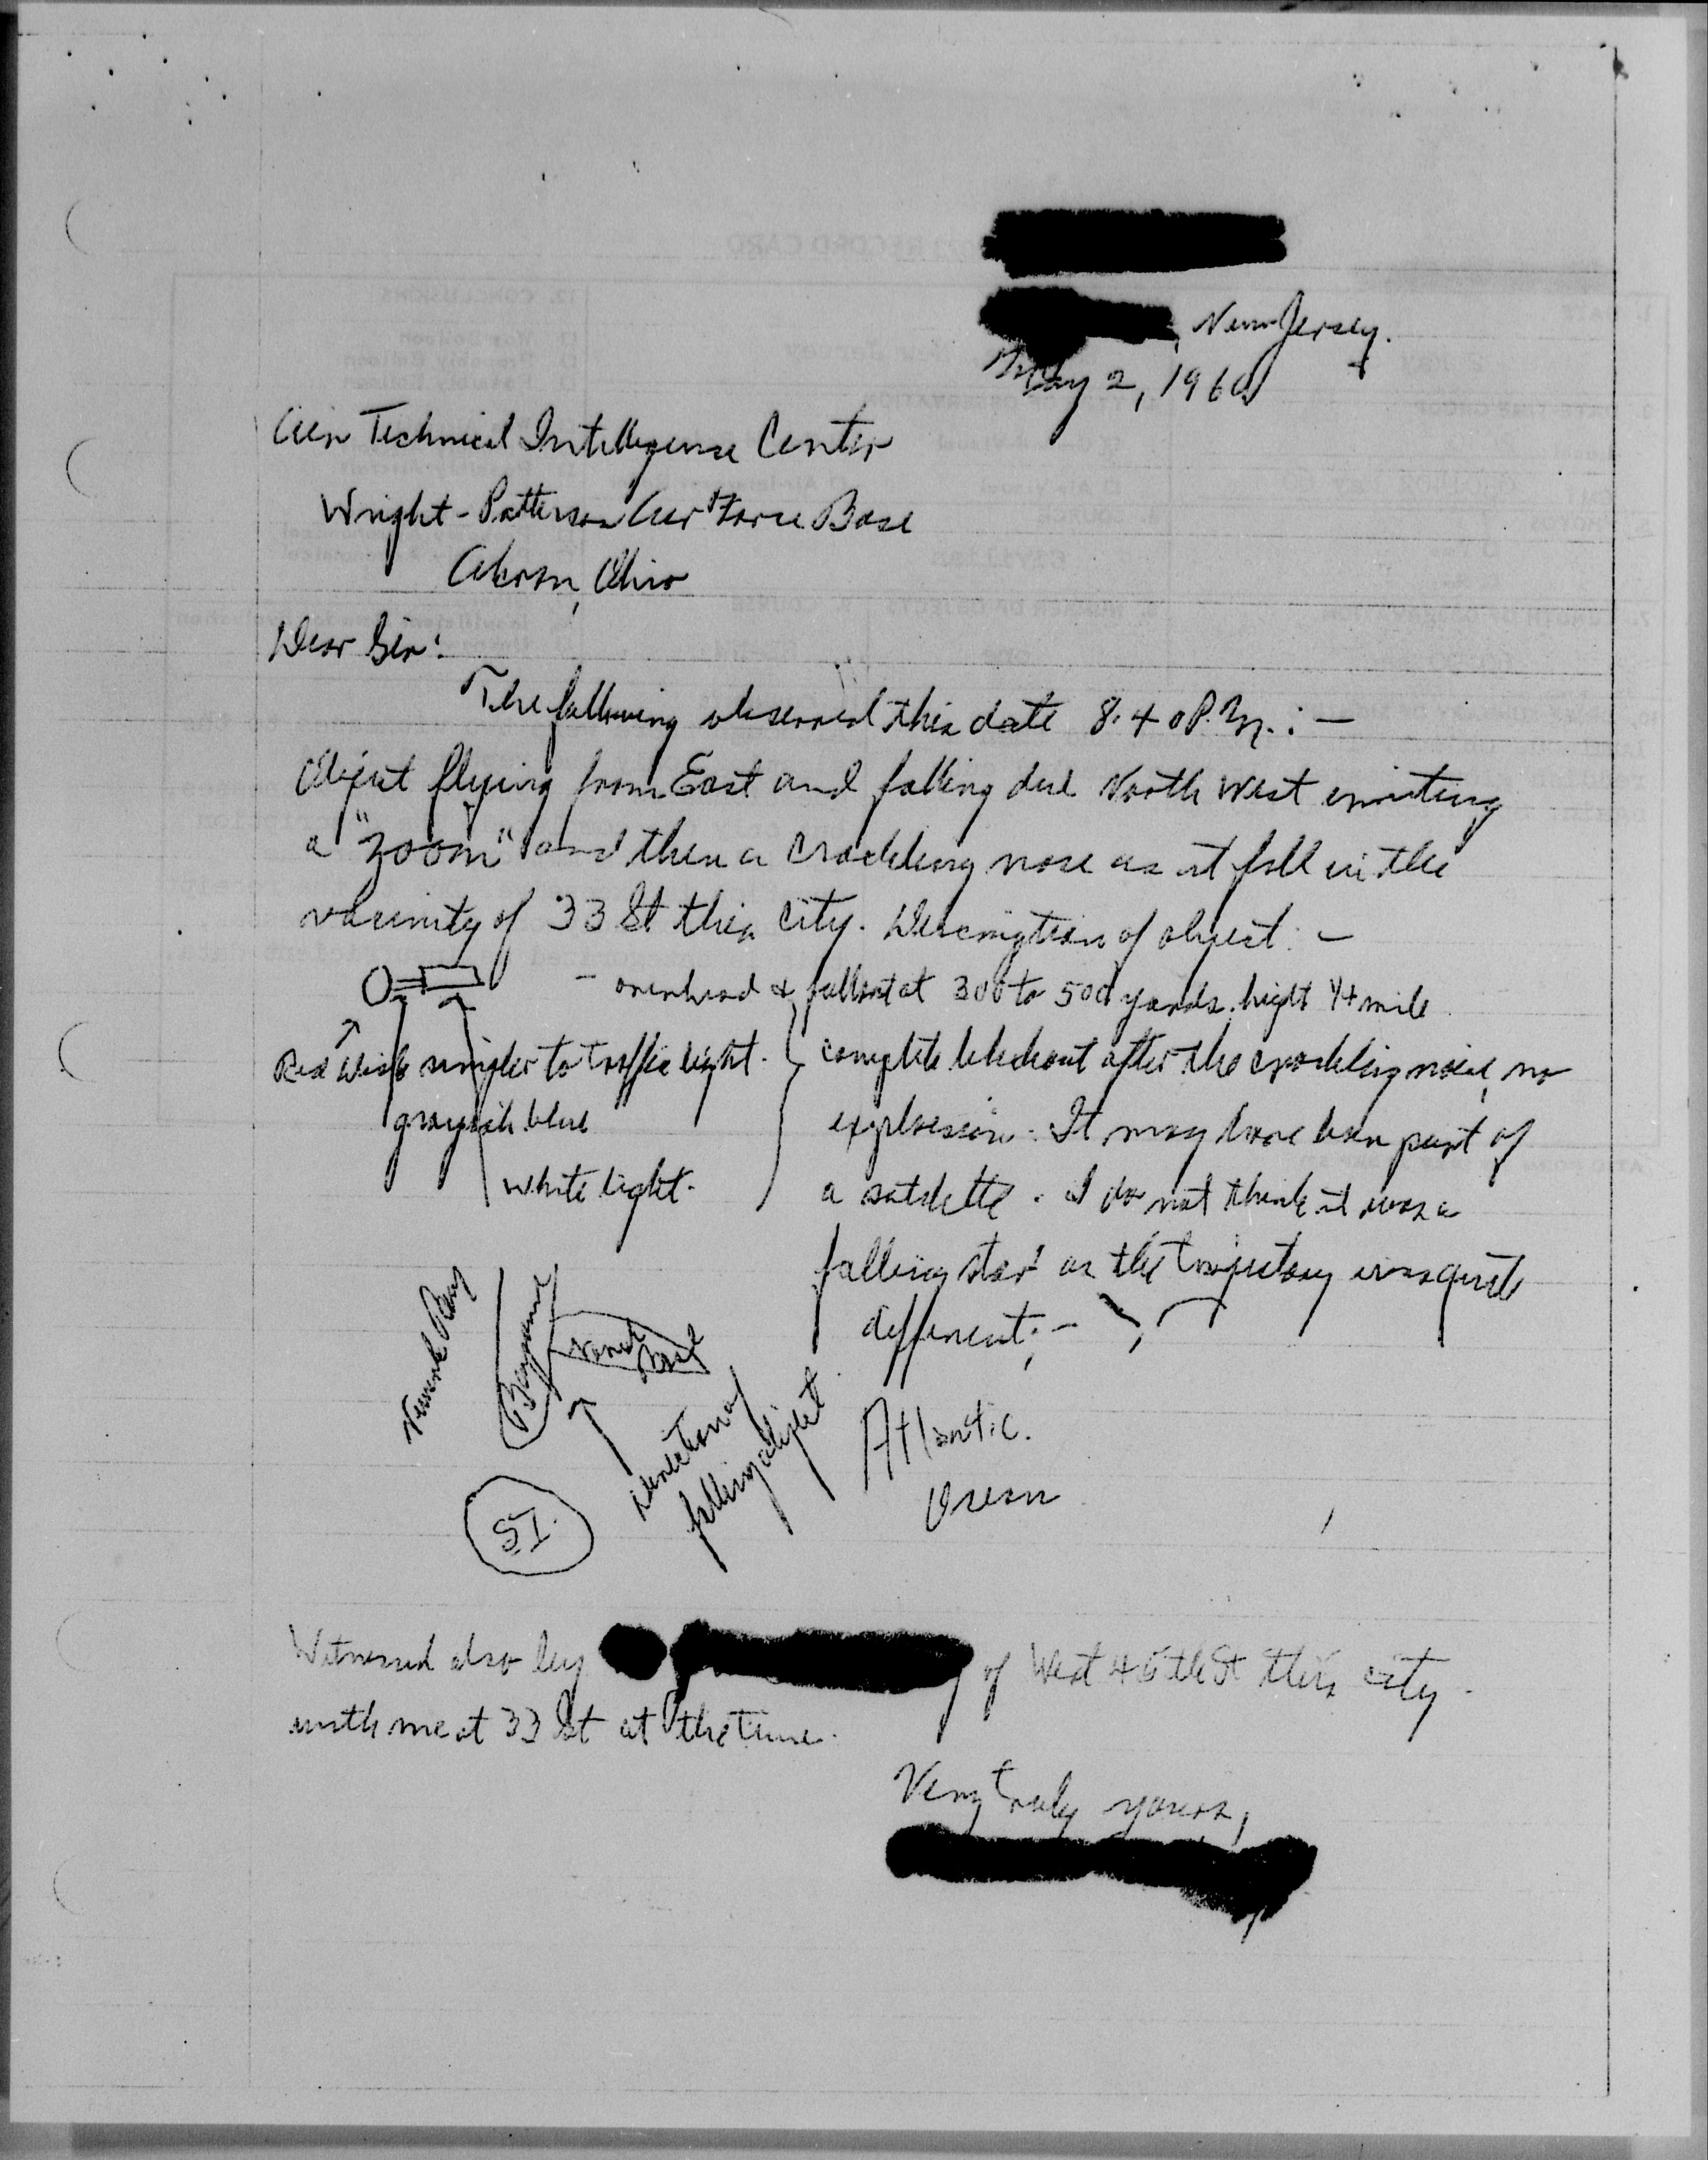 , New Jersey.
May 2, 1960
Air Technical Intelligence Center
Wright-Patterson Air Force Base
Akron, Ohio
Dear Sir:
The following observed this date 8.40 P.M.: —
Object flying from East and falling due North West emiting
a "zoom" and then a crackling nose as it fell in the
vacinity of 33 St this city. Description of object: —
— overhead & fallout at 300 to 500 yards. hight 1/4 mile
Red similar to traffic light.
grayish blue
white light.
complete blackout after the crackling noise, no
explosion. It may have been part of
a satelette. I do not think it was a
falling star as the trajectory was quite
different: —
Newark Bay
Bayonne
Naval Base
direction of
falling object
Atlantic
Ocean
S I.
Witnessed also by of West 45th St this city
with me at 33 St at the time.
Very truly yours,